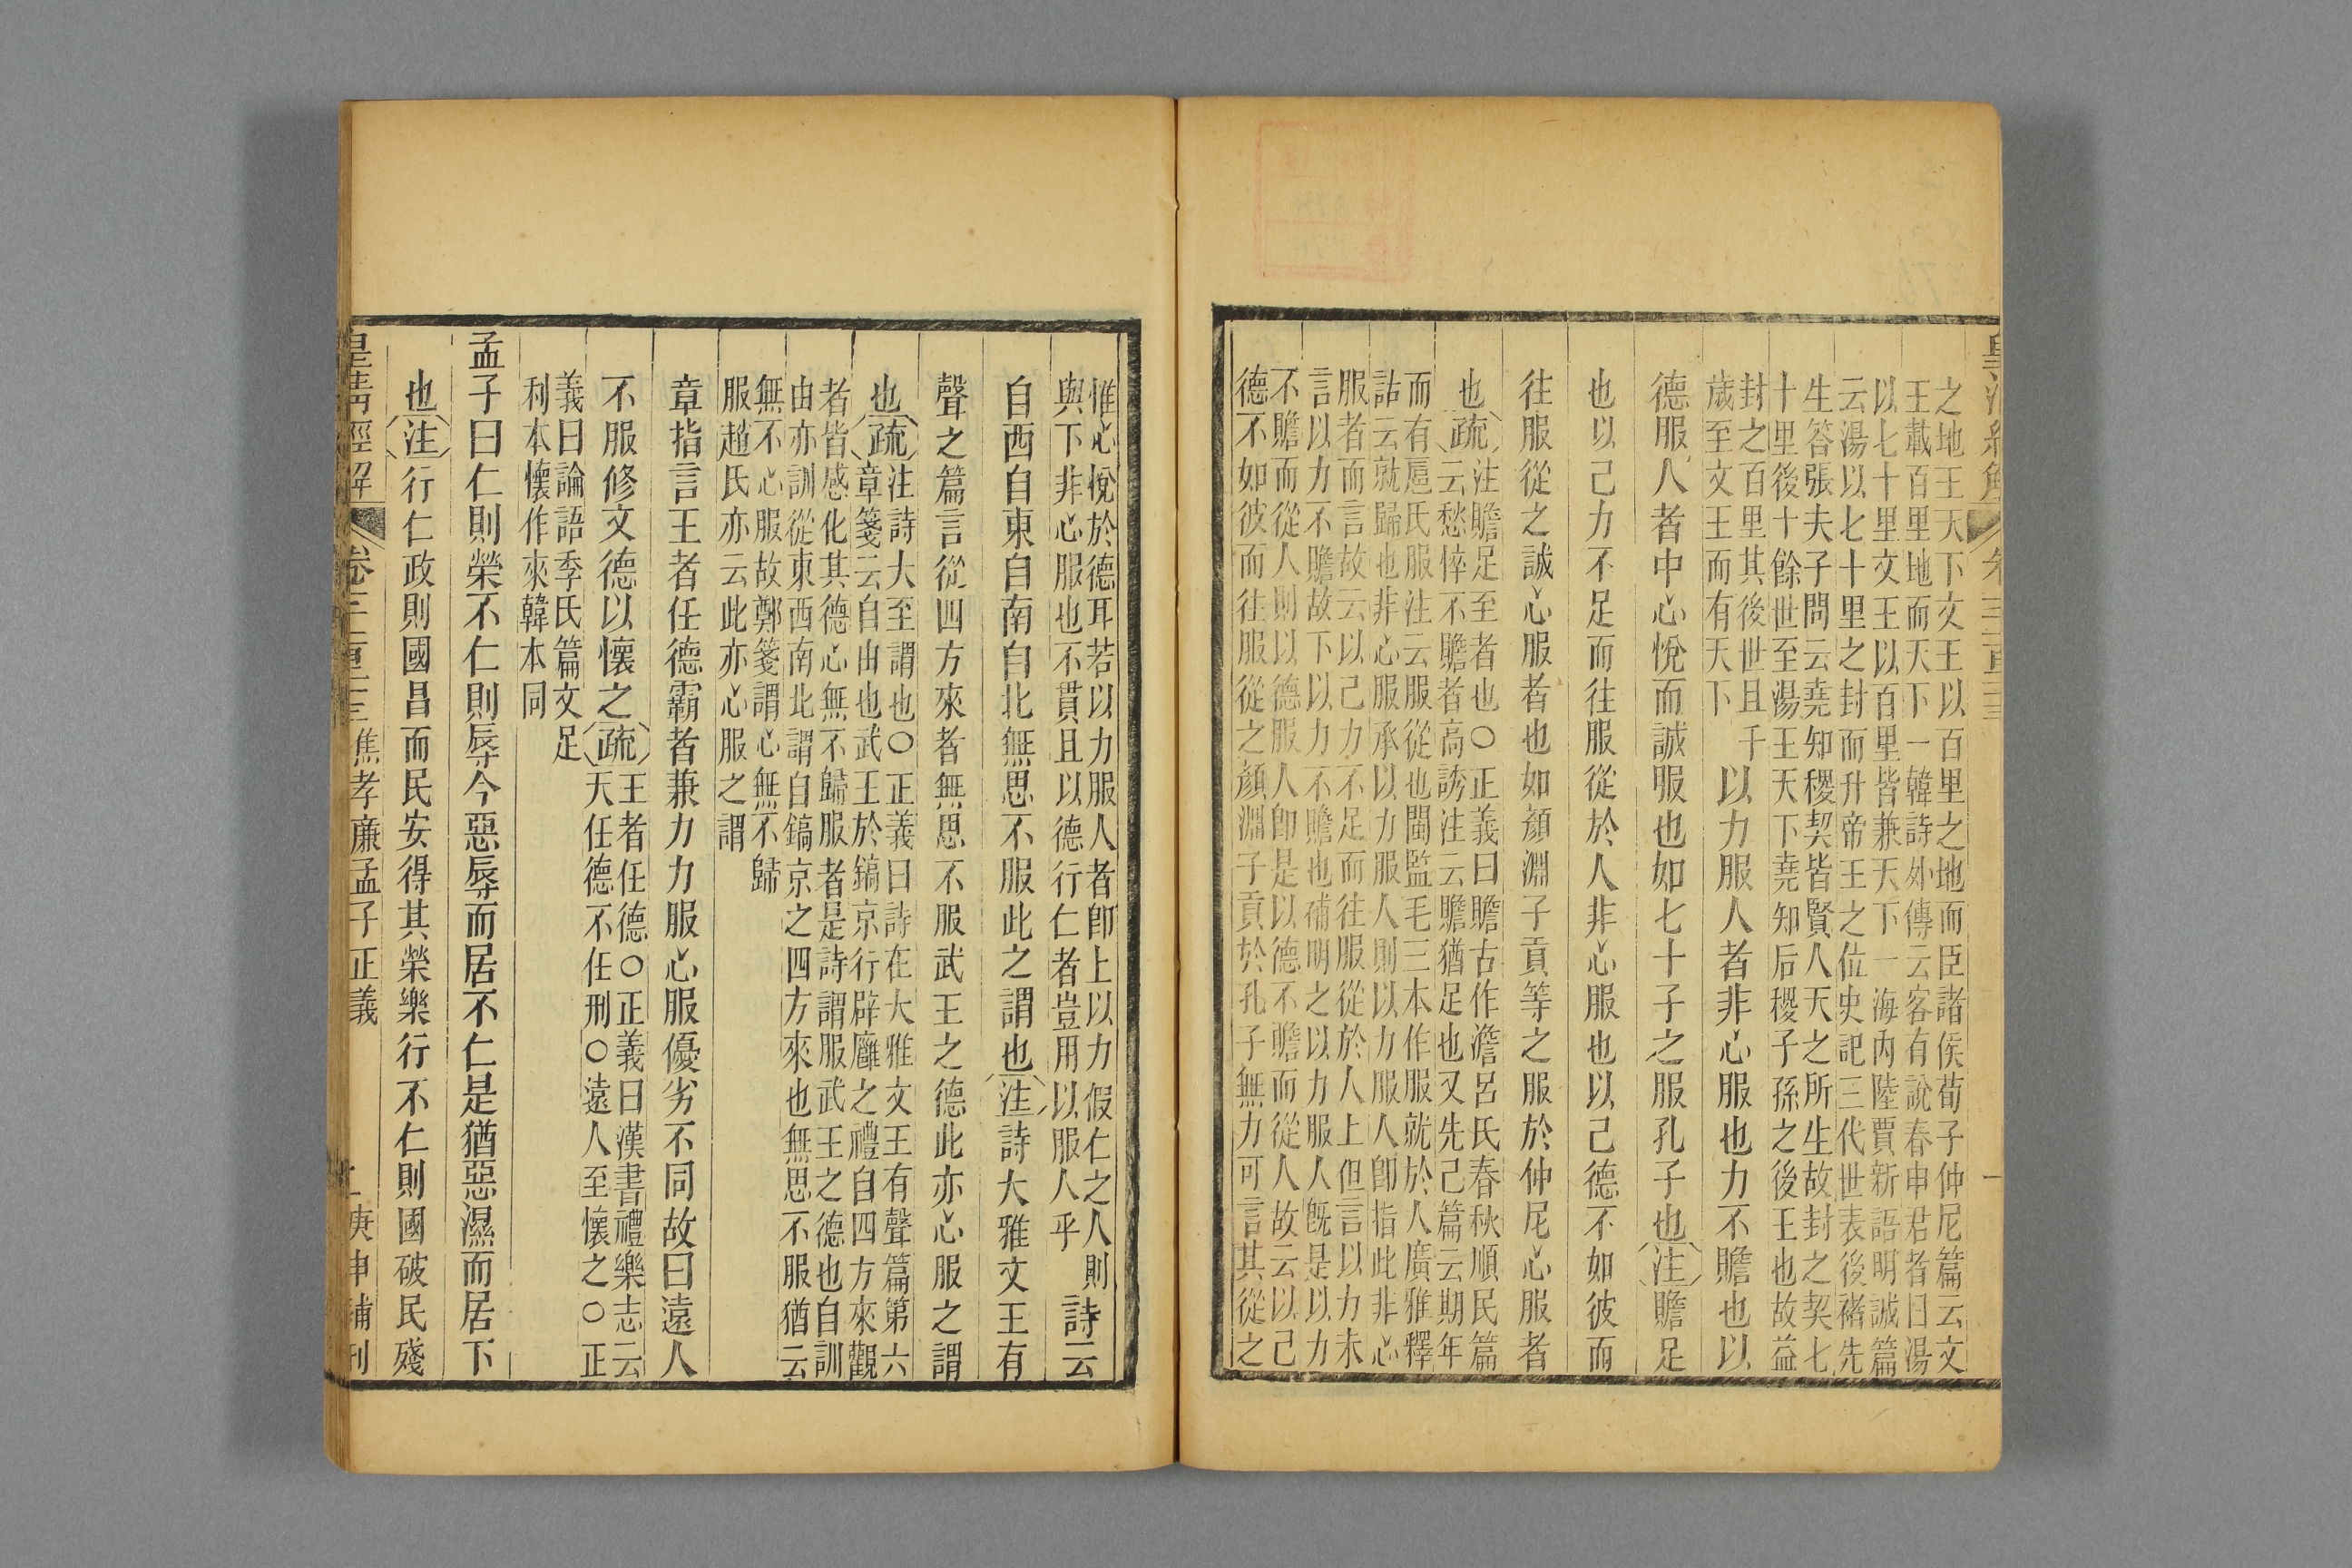 之地王天下文王以百里之地而臣諸侯荀子仲尼篇云文
王載百里地而天下一韓詩外傳云客有說春申君者曰湯
以七十里文王以百里皆兼天下一海內陸賈新語明誡篇
云湯以七十里之封而升帝王之位史記三代世表後褚先
生答張夫子問云堯知稷契皆賢人天之所生故封之契七
十里後十餘世至湯王天下堯知后稷子孫之後王也故益
封之百里其後世且千
歲至文王而有天下
以力服人者非心服也力不贍也以
德服人者中心悅而誠服也如七十子之服孔子也注贍足
也以己力不足而往服從於人非心服也以己德不如彼而
往服從之誠心服者也如顏淵子貢等之服於仲尼心服者
也疏
注贍足至者也○正義曰贍古作澹呂氏春秋順民篇
云愁悴不贍者高誘注云贍猶足也又先己篇云期年
而有扈氏服注云服從也閩監毛三本作服就於人廣雅釋
詁云就歸也非心服承以力服人則以力服人卽指此非心
服者而言故云以己力不足而往服從於人上但言以力未
言以力不贍故下以力不贍也補明之以力服人旣是以力
不贍而從人則以德服人卽是以德不贍而從人故云以己
德不如彼而往服從之顏淵子貢於孔子無力可言其從之
惟心悅於德耳若以力服人者卽上以力假仁之人則
與下非心服也不貫且以德行仁者豈用以服人乎
詩云
自西自東自南自北無思不服此之謂也注詩大雅文王有
聲之篇言從四方來者無思不服武王之德此亦心服之謂
也疏
注詩大至謂也○正義曰詩在大雅文王有聲篇第六
章箋云自由也武王於鎬京行辟廱之禮自四方來觀
者皆感化其德心無不歸服者是詩謂服武王之德也自訓
由亦訓從東西南北謂自鎬京之四方來也無思不服猶云
無不心服故鄭箋謂心無不歸
服趙氏亦云此亦心服之謂
章指言王者任德霸者兼力力服心服優劣不同故曰遠人
不服修文德以懷之疏
王者任德○正義曰漢書禮樂志云
天任德不任刑○遠人至懷之○正
義曰論語季氏篇文足
利本懷作來韓本同
孟子曰仁則榮不仁則辱今惡辱而居不仁是猶惡濕而居下
也注行仁政則國昌而民安得其榮樂行不仁則國破民殘
皇淸經解 焦孝廉孟子正義 庚申補刊